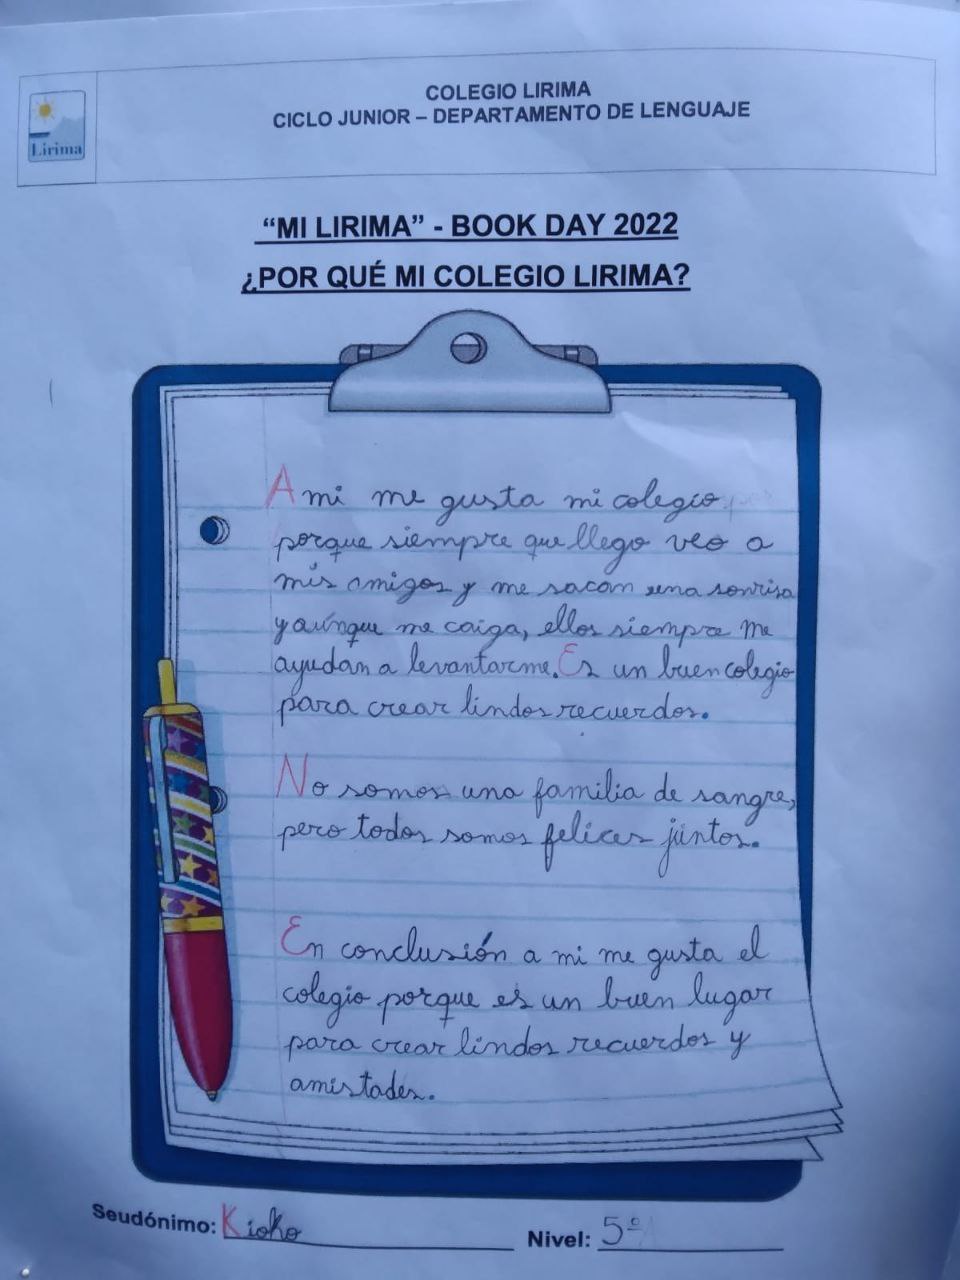 Lirima
COLEGIO LIRIMA
CICLO JUNIOR – DEPARTAMENTO DE LENGUAJE
“MI LIRIMA” - BOOK DAY 2022
¿POR QUÉ MI COLEGIO LIRIMA?
A mi me gusta mi colegio
porque siempre que llego veo a
mis amigos y me sacan una sonrisa
y aúnque me caiga, ellos siempre me
ayudan a levantarme. Es un buen colegio
para crear lindos recuerdos.
No somos una familia de sangre,
pero todos somos felices juntos.
En conclusión a mi me gusta el
colegio porque es un buen lugar
para crear lindos recuerdos y
amistades.
Seudónimo: Kioko
Nivel: 5º